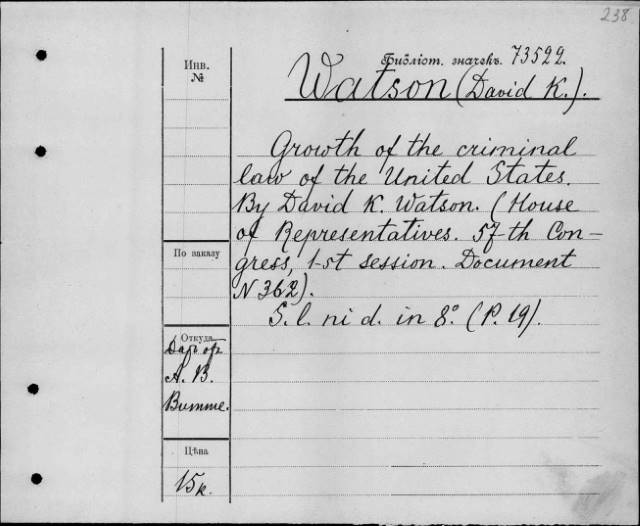 238
Инв.
№
Библіот. значекъ. 73522.
Watson (David K.).
Growth of the criminal
law of the United States.
By David K. Watson. (House
of Representatives. 57-th Con-
gress, 1-st session. Document
N 362).
S. l. ni d. in 8º. (P. 19).
По заказу
Откуда
Даръ отъ
А. В.
Витте.
Цѣна
15 к.